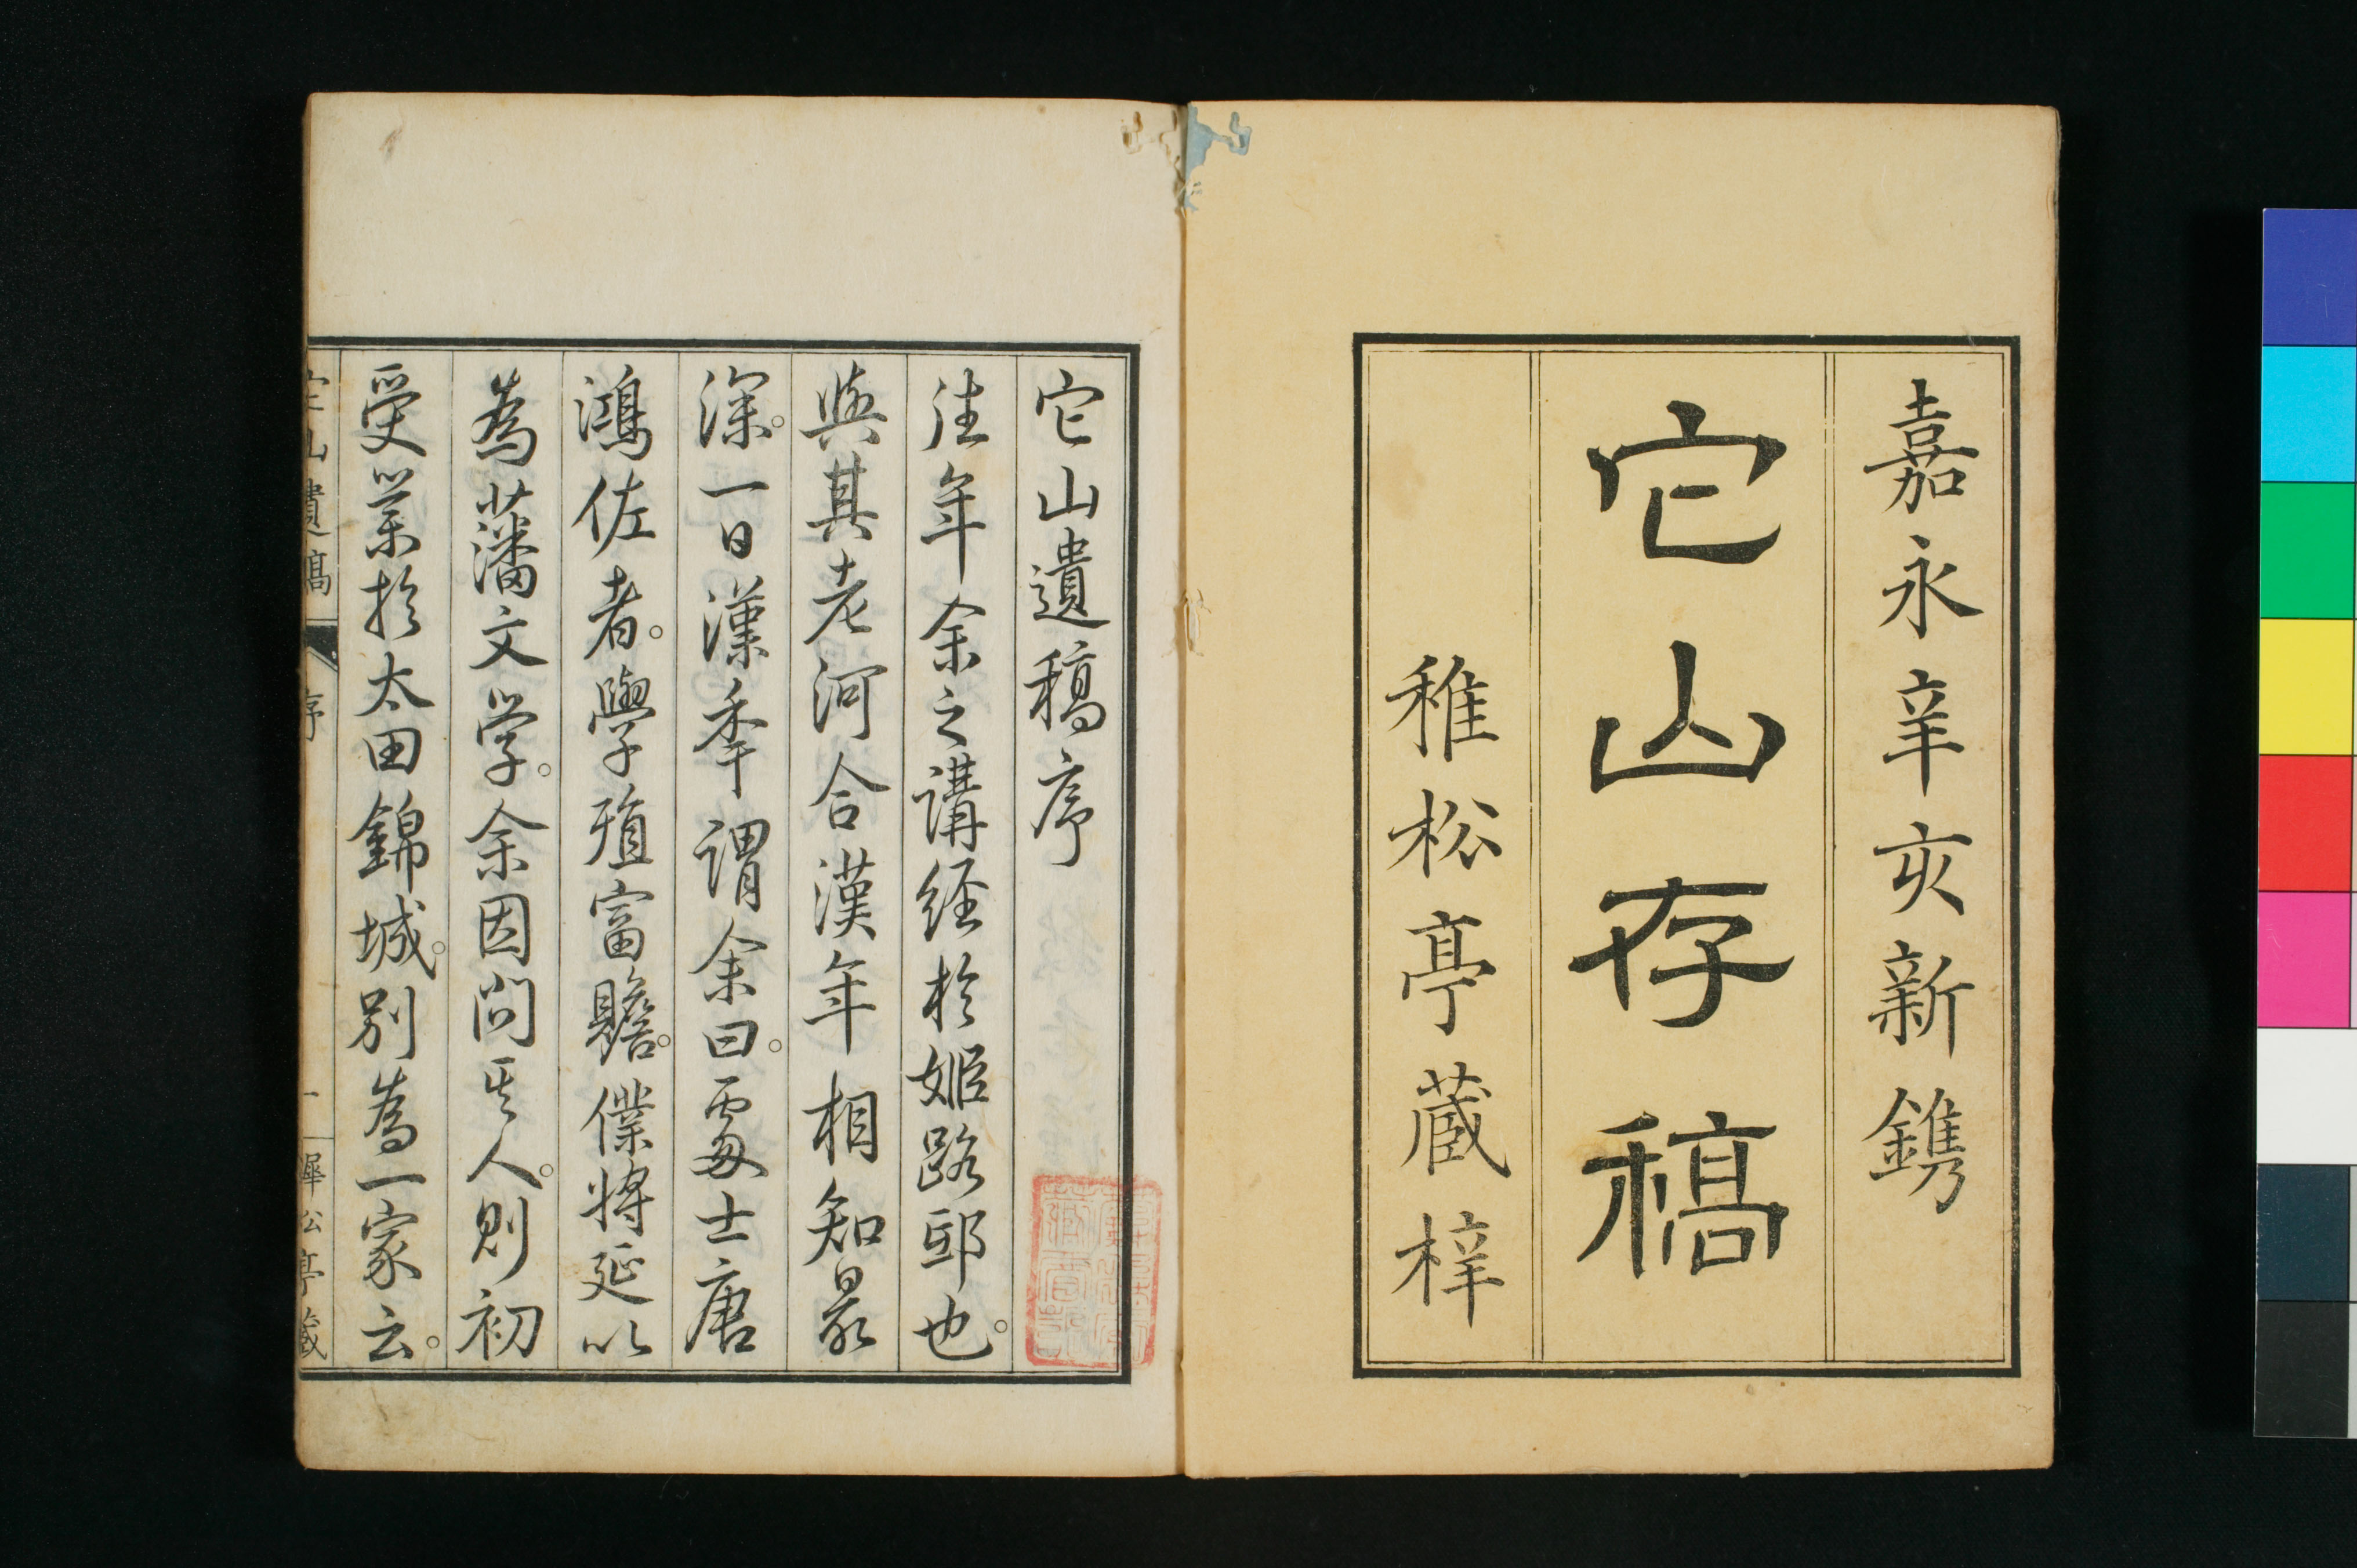 嘉永辛亥新鐫
它山存稿
稚松亭蔵梓
它山遺稿序
往年余之講經於姫路邸也。
與其老河合漢年相知最
深。一日漢季謂余曰。處士唐
鴻佐者。學殖富贍。僕將延以
為藩文学。余因問其人。則初
受業於太田錦城。別為一家云。
它山遺稿
序
一
稺松亭藏